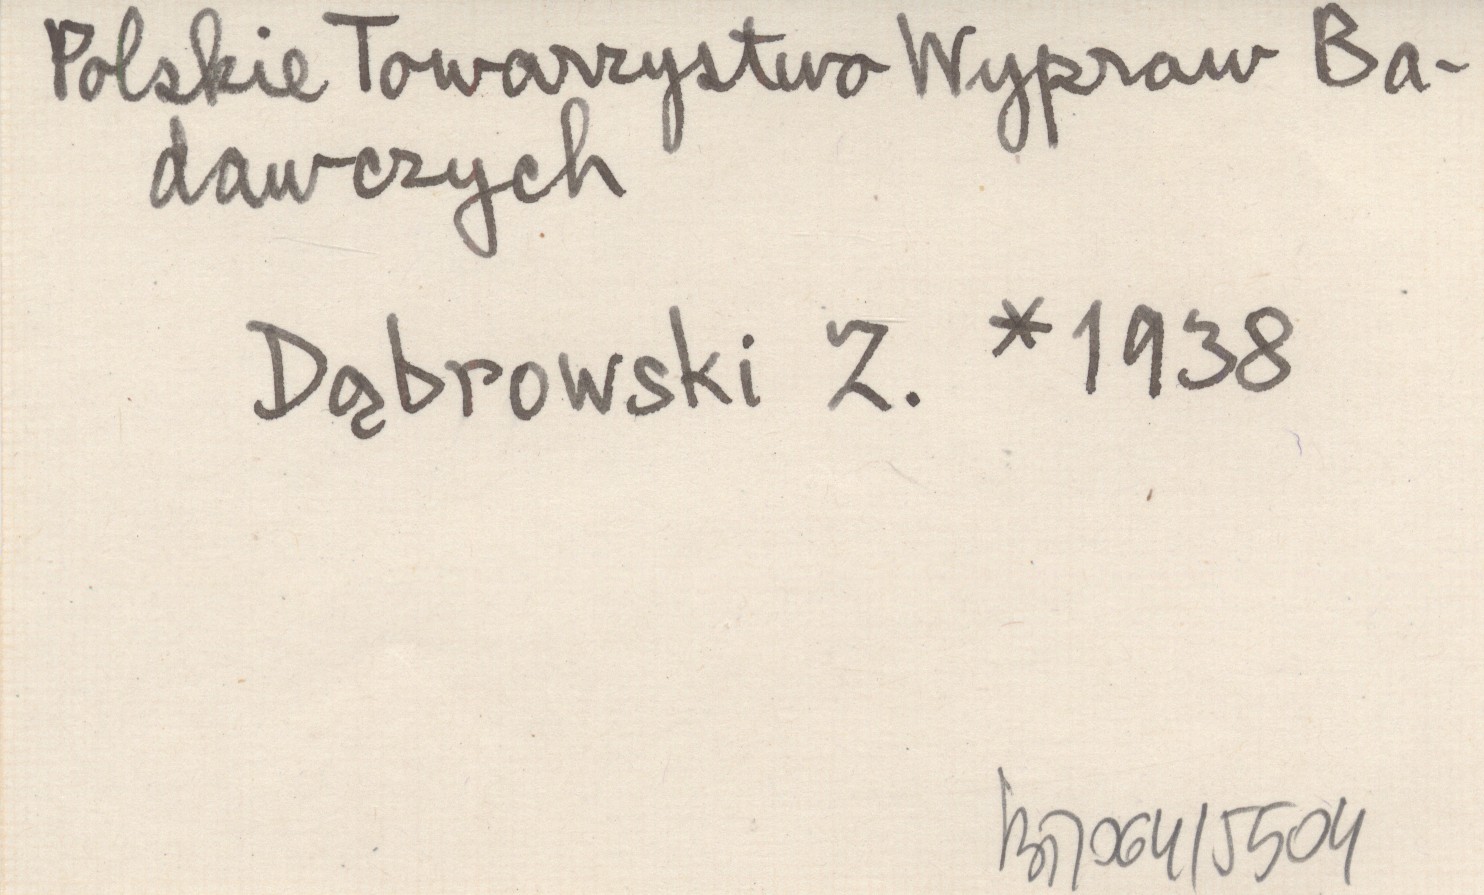 Polskie Towarzystwo Wypraw Ba-
dawczych
Dąbrowski Z. *1938
064/5504